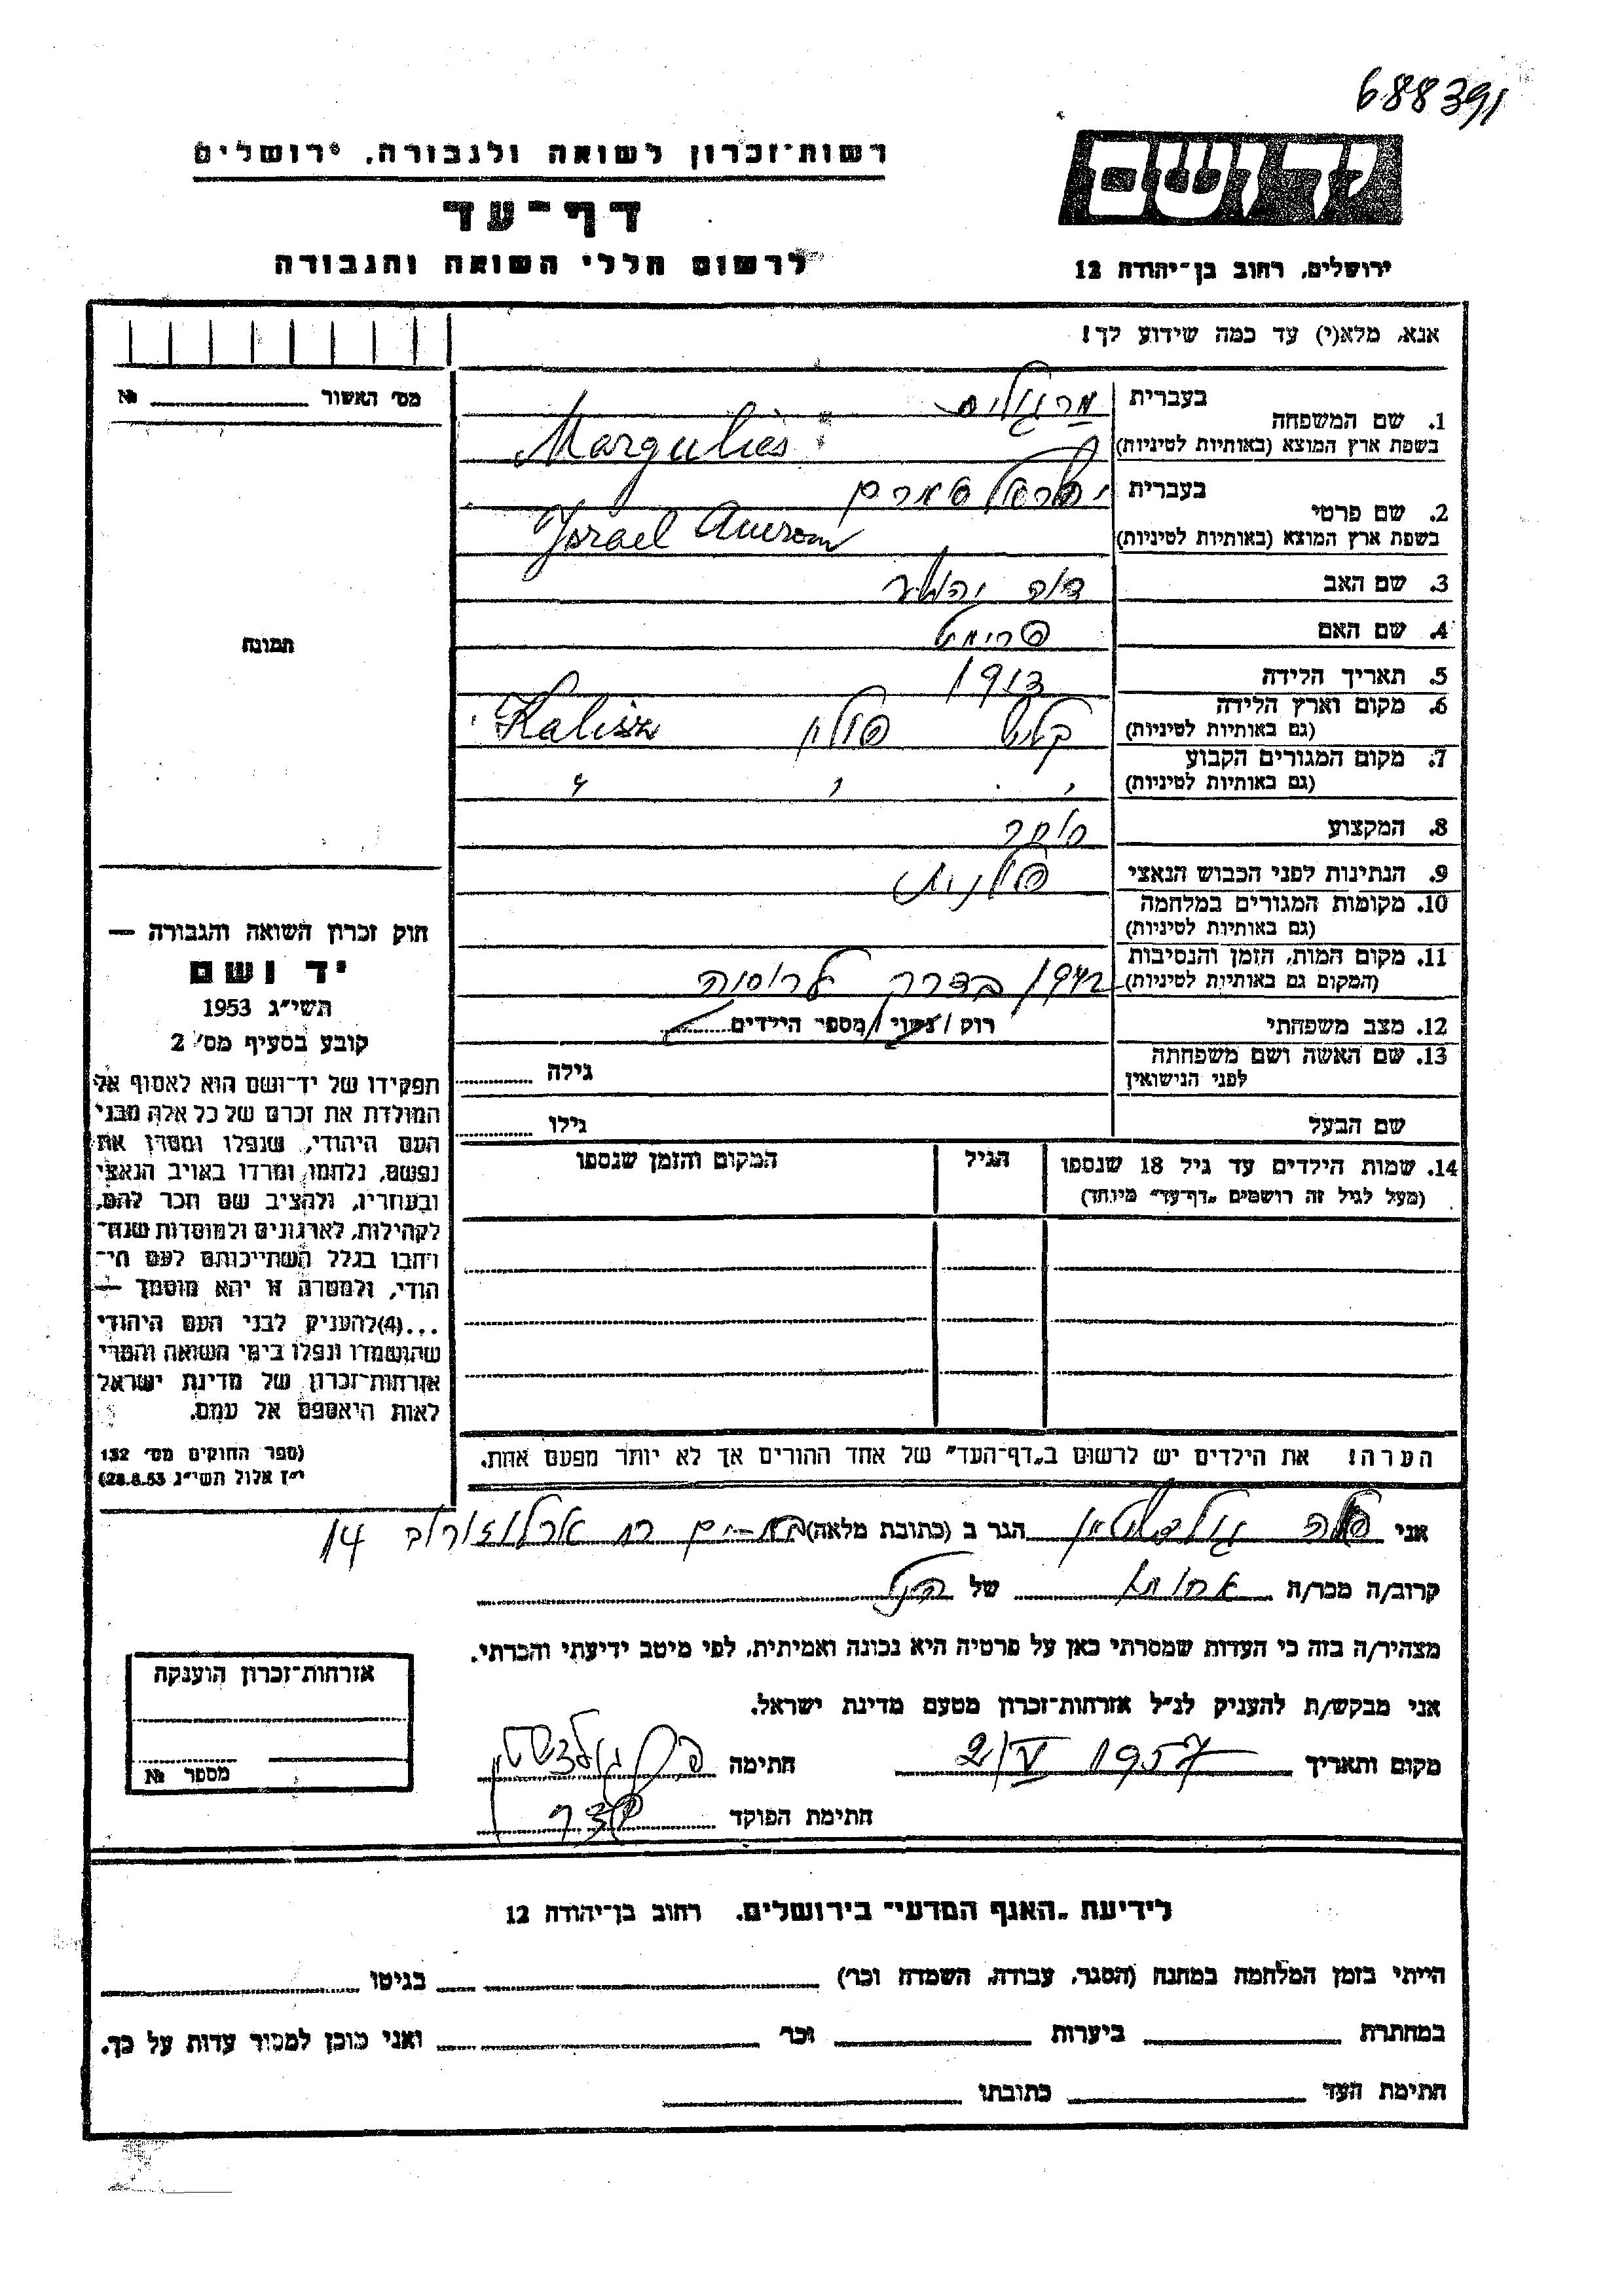 688391
רשות־זכרון לשואה ולגבורה, ירושלים
יד ושם
דף־עד
לרשום חללי השואה והגבורה
ירושלים, רחוב בן־יהודה 12
אנא, מלא(י) עד כמה שידוע לך!
מס׳ האשור №
1. שם המשפחה
בעברית מרגוליס
בשפת ארץ המוצא (באותיות לטיניות) Margulies
2. שם פרטי
בעברית ישראל
בשפת ארץ המוצא (באותיות לטיניות) Israel
3. שם האב דוד יהושע
4. שם האם פרימט
תמונה
5. תאריך הלידה 1913
6. מקום וארץ הלידה
(גם באותיות לטיניות) קליש פולין Kalisz
7. מקום המגורים הקבוע
(גם באותיות לטיניות) " " "
8. המקצוע סוחר
9. הנתינות לפני הכבוש הנאצי פולנית
10. מקומות המגורים במלחמה
(גם באותיות לטיניות)
11. מקום המות, הזמן והנסיבות
(המקום גם באותיות לטיניות) 1942 בדרך לרוסיה
12. מצב משפחתי רוק / נשוי / מספר הילדים
13. שם האשה ושם משפחתה
לפני הנישואין גילה
שם הבעל גילו
חוק זכרון השואה והגבורה —
יד ושם
תשי״ג 1953
קובע בסעיף מס׳ 2
תפקידו של יד־ושם הוא לאסוף אל
המולדת את זכרם של כל אלה מבני
העם היהודי, שנפלו ומסרו את
נפשם, נלחמו ומרדו באויב הנאצי
ובעוזריו, ולהציב שם וזכר להם,
לקהילות, לארגונים ולמוסדות שנח־
רבו בגלל השתייכותם לעם הי־
הודי, ולמטרה זו יהא מוסמך —
...(4) להעניק לבני העם היהודי
שהושמדו ונפלו בימי השואה והמרי
אזרחות־זכרון של מדינת ישראל
לאות היאספם אל עמם.
(ספר החוקים מס׳ 132
י״ז אלול תשי״ג 28.8.53)
14. שמות הילדים עד גיל 18 שנספו
(מעל לגיל זה רושמים „דף־עד״ מיוחד)
הגיל
המקום והזמן שנספו
הערה! את הילדים יש לרשום ב„דף־העד״ של אחד ההורים אך לא יותר מפעם אחת.
אני גולדשטיין הגר ב (כתובת מלאה) בת-ים רח ארלוזורוב 14
קרוב/ה מכר/ה אחותו של הנ״ל
מצהיר/ה בזה כי העדות שמסרתי כאן על פרטיה היא נכונה ואמיתית, לפי מיטב ידיעתי והכרתי.
אני מבקש/ת להעניק לנ״ל אזרחות־זכרון מטעם מדינת ישראל.
מקום ותאריך 2/V 1957 חתימה גולדשטיין
חתימת הפוקד
אזרחות־זכרון הוענקה
מספר №
לידיעת „האגף המדעי״ בירושלים, רחוב בן־יהודה 12
הייתי בזמן המלחמה במחנה (הסגר, עבודה, השמדה וכו׳) בגיטו
במחתרת ביערות וכו׳ ואני מוכן למסור עדות על כך.
חתימת העד כתובתו